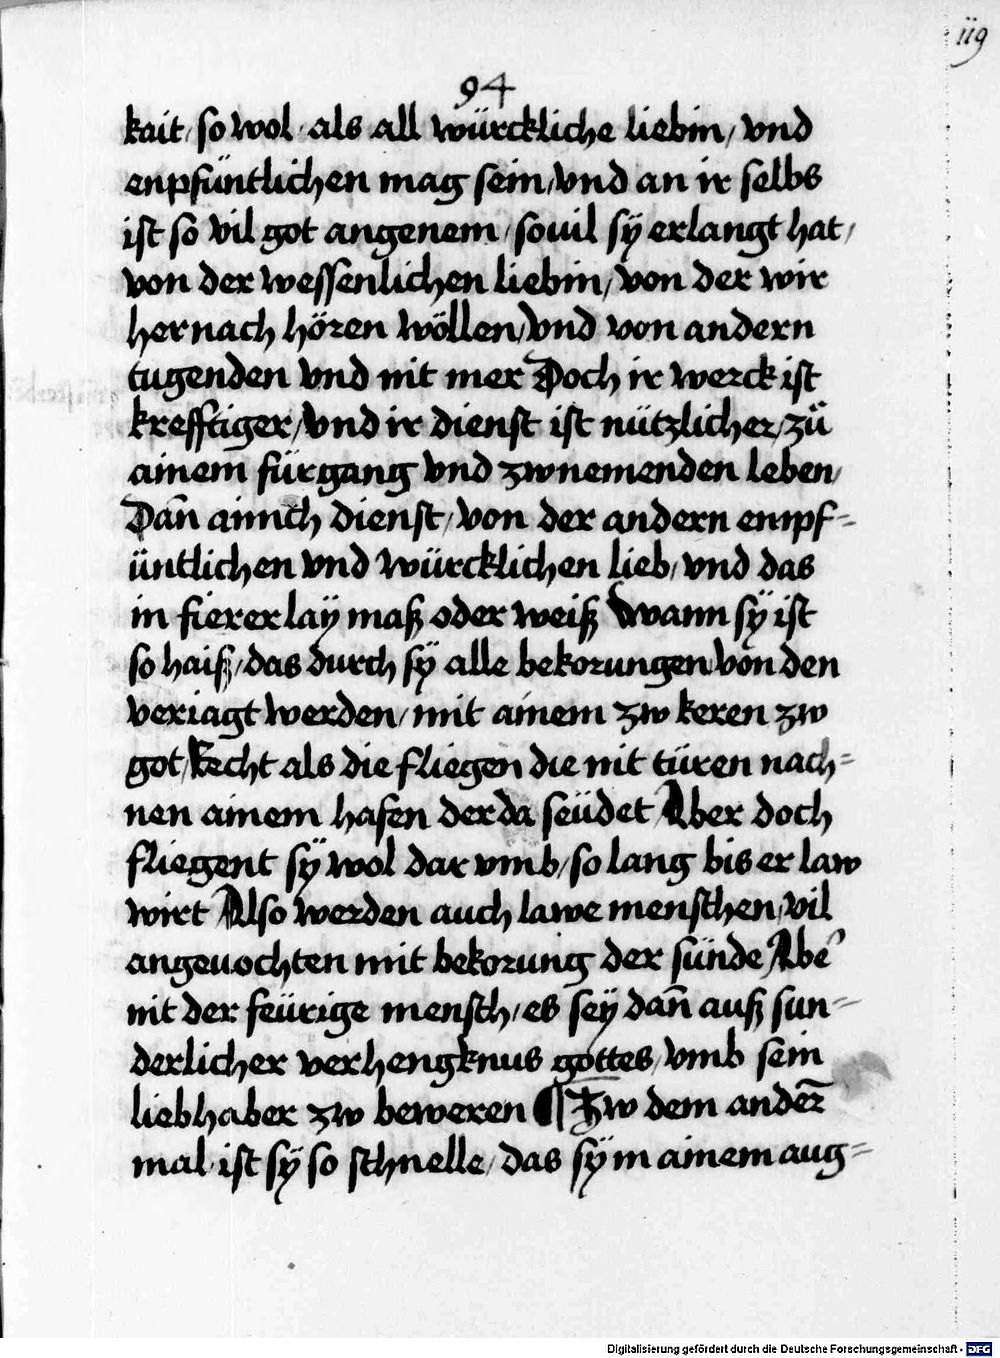 119
94
kait / so wol · als all würckliche liebin / vnd
enpfüntlichen mag sein / vnd an ir selbs
ist so vil got angenem / souil sÿ erlangt hat /
von der wessenlichen liebin / von der wir
hernach hören wöllen / vnd von andern
tugenden vnd nit mer Doch ir werck ist
krefftiger / vnd ir dienst ist nützlicher / zů
ainem fürgang vnd zwnemenden leben /
Dan̄ ainich dienst / von der andern empf=
üntlichen vnd würcklichen lieb / vnd das
in fierer laÿ maß oder weiß Wann sÿ ist
so haiß / das durch sÿ alle bekorungen von den
veriagt werden / mit ainem zw keren zw
got / Recht als die fliegen die nit türen nach=
nen ainem hafen der da seüdet Aber doch
fliegent sÿ wol dar vmb / so lang bis er law
wirt Also werden auch lawe menschen / vil
angeuochten mit bekorung der sünde Abe͛
nit der feürige mensch / es seÿ dan̄ auß sun=
derlicher verhengknus gottes / vmb sein
liebhaber zw beweren ¶ Zw demander̄
mal · ist sÿ so schnelle / das sÿ in ainem aug=
Digitalisierung gefördert durch die Deutsche Forschungsgemeinschaft - DFG